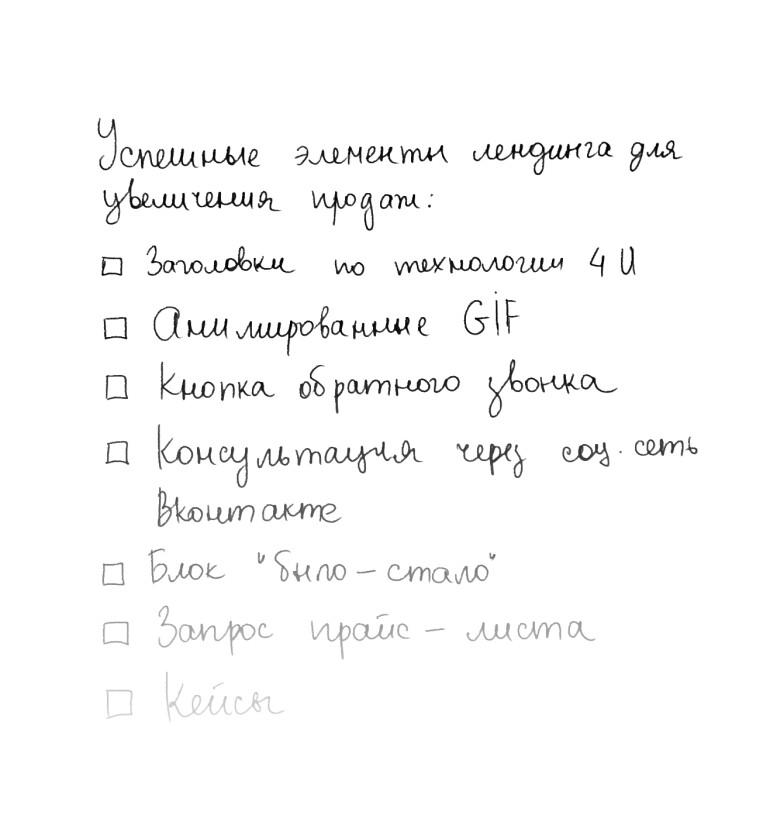 Успешные элементы лендинга для
увеличения продаж:
Заголовки по технологии 4 U
Анимированные GIF
Кнопка обратного звонка
Консультация через соц. сеть
Вконтакте
Блок "было – стало"
Запрос прайс – листа
Кейсы